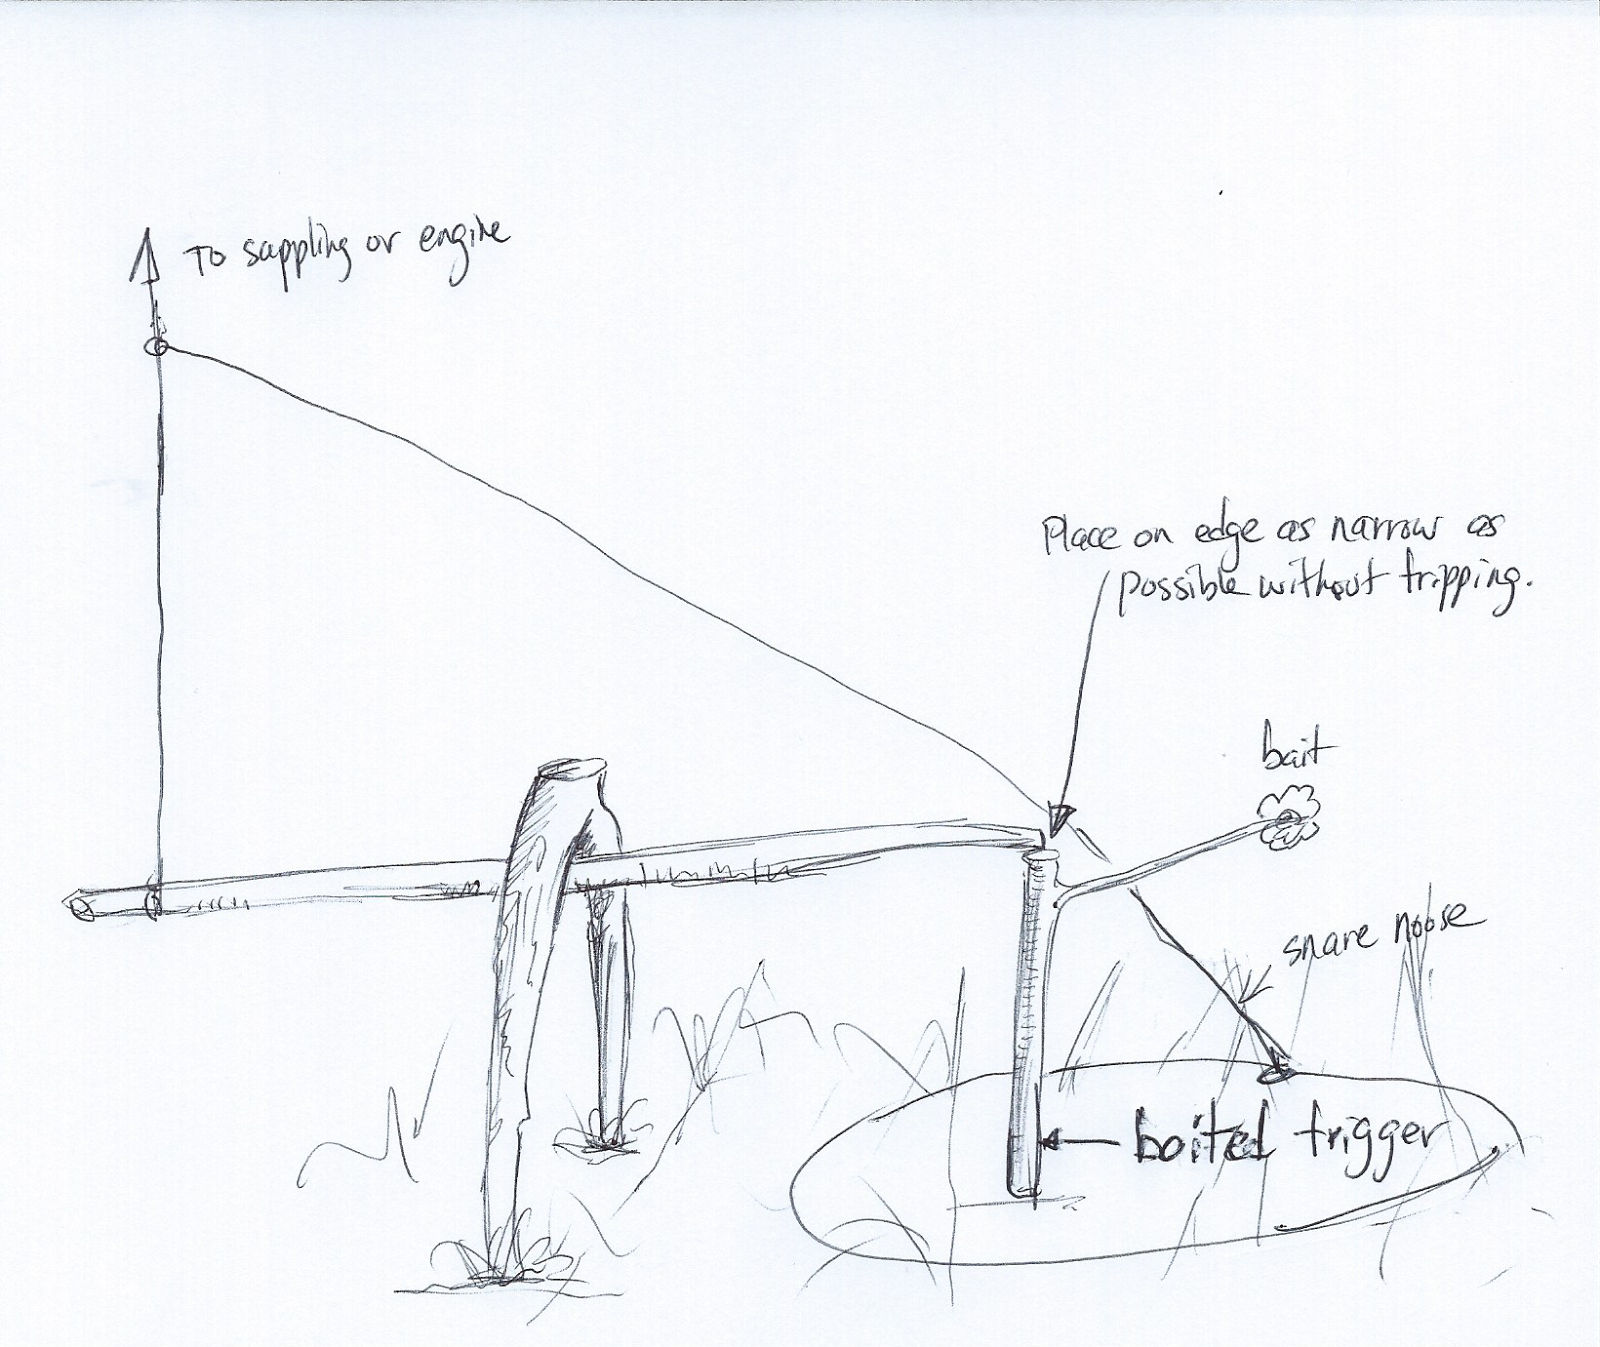 To sappling or engine
Place on edge as narrow as
possible without tripping.
bait
snare noose
baited trigger